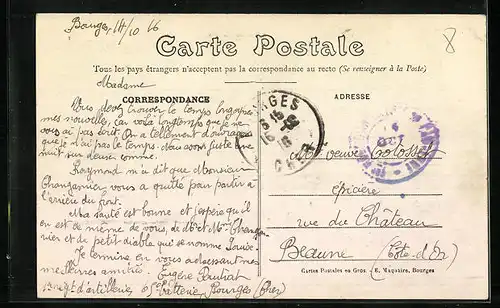 Bourges, 14/10 16
8
Carte Postale
Tous les pays étrangers n'acceptent pas la correspondance au recto (Se renseigner à la Poste)
Madame
CORRESPONDANCE
ADRESSE
Vous devez trouver le temps long après
mes nouvelles, car voilà longtemps que je ne
vous ai pas écrit. On a tellement d'ouvrage
que je n'ai pas le temps. Nous avons juste une
nuit sur deux comme.
Raymond m'a dit que Monsieur
Changarnier vous a quitté pour partir à
l'arrière du front.
Ma santé est bonne et j'espère qu'il
en est de même de vous, de M et Me Changar
nier et du petit diable qui se nomme Louise.
Je termine en vous adressant mes
meilleures amitiés. Eugène
d'artillerie, 65e Batterie Bourges (Cher)
BOURGES
CHER
veuve Colosset
épicière
rue du Château
Beaune (Côte-d'Or)
Cartes Postales en Gros. - E. Maquaire, Bourges